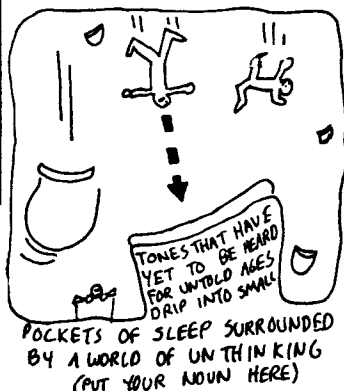 TONES THAT HAVE
YET TO BE HEARD
FOR UNTOLD AGES
DRIP INTO SMALL
POCKETS OF SLEEP SURROUNDED
BY A WORLD OF UNTHINKING
(PUT YOUR NOUN HERE)